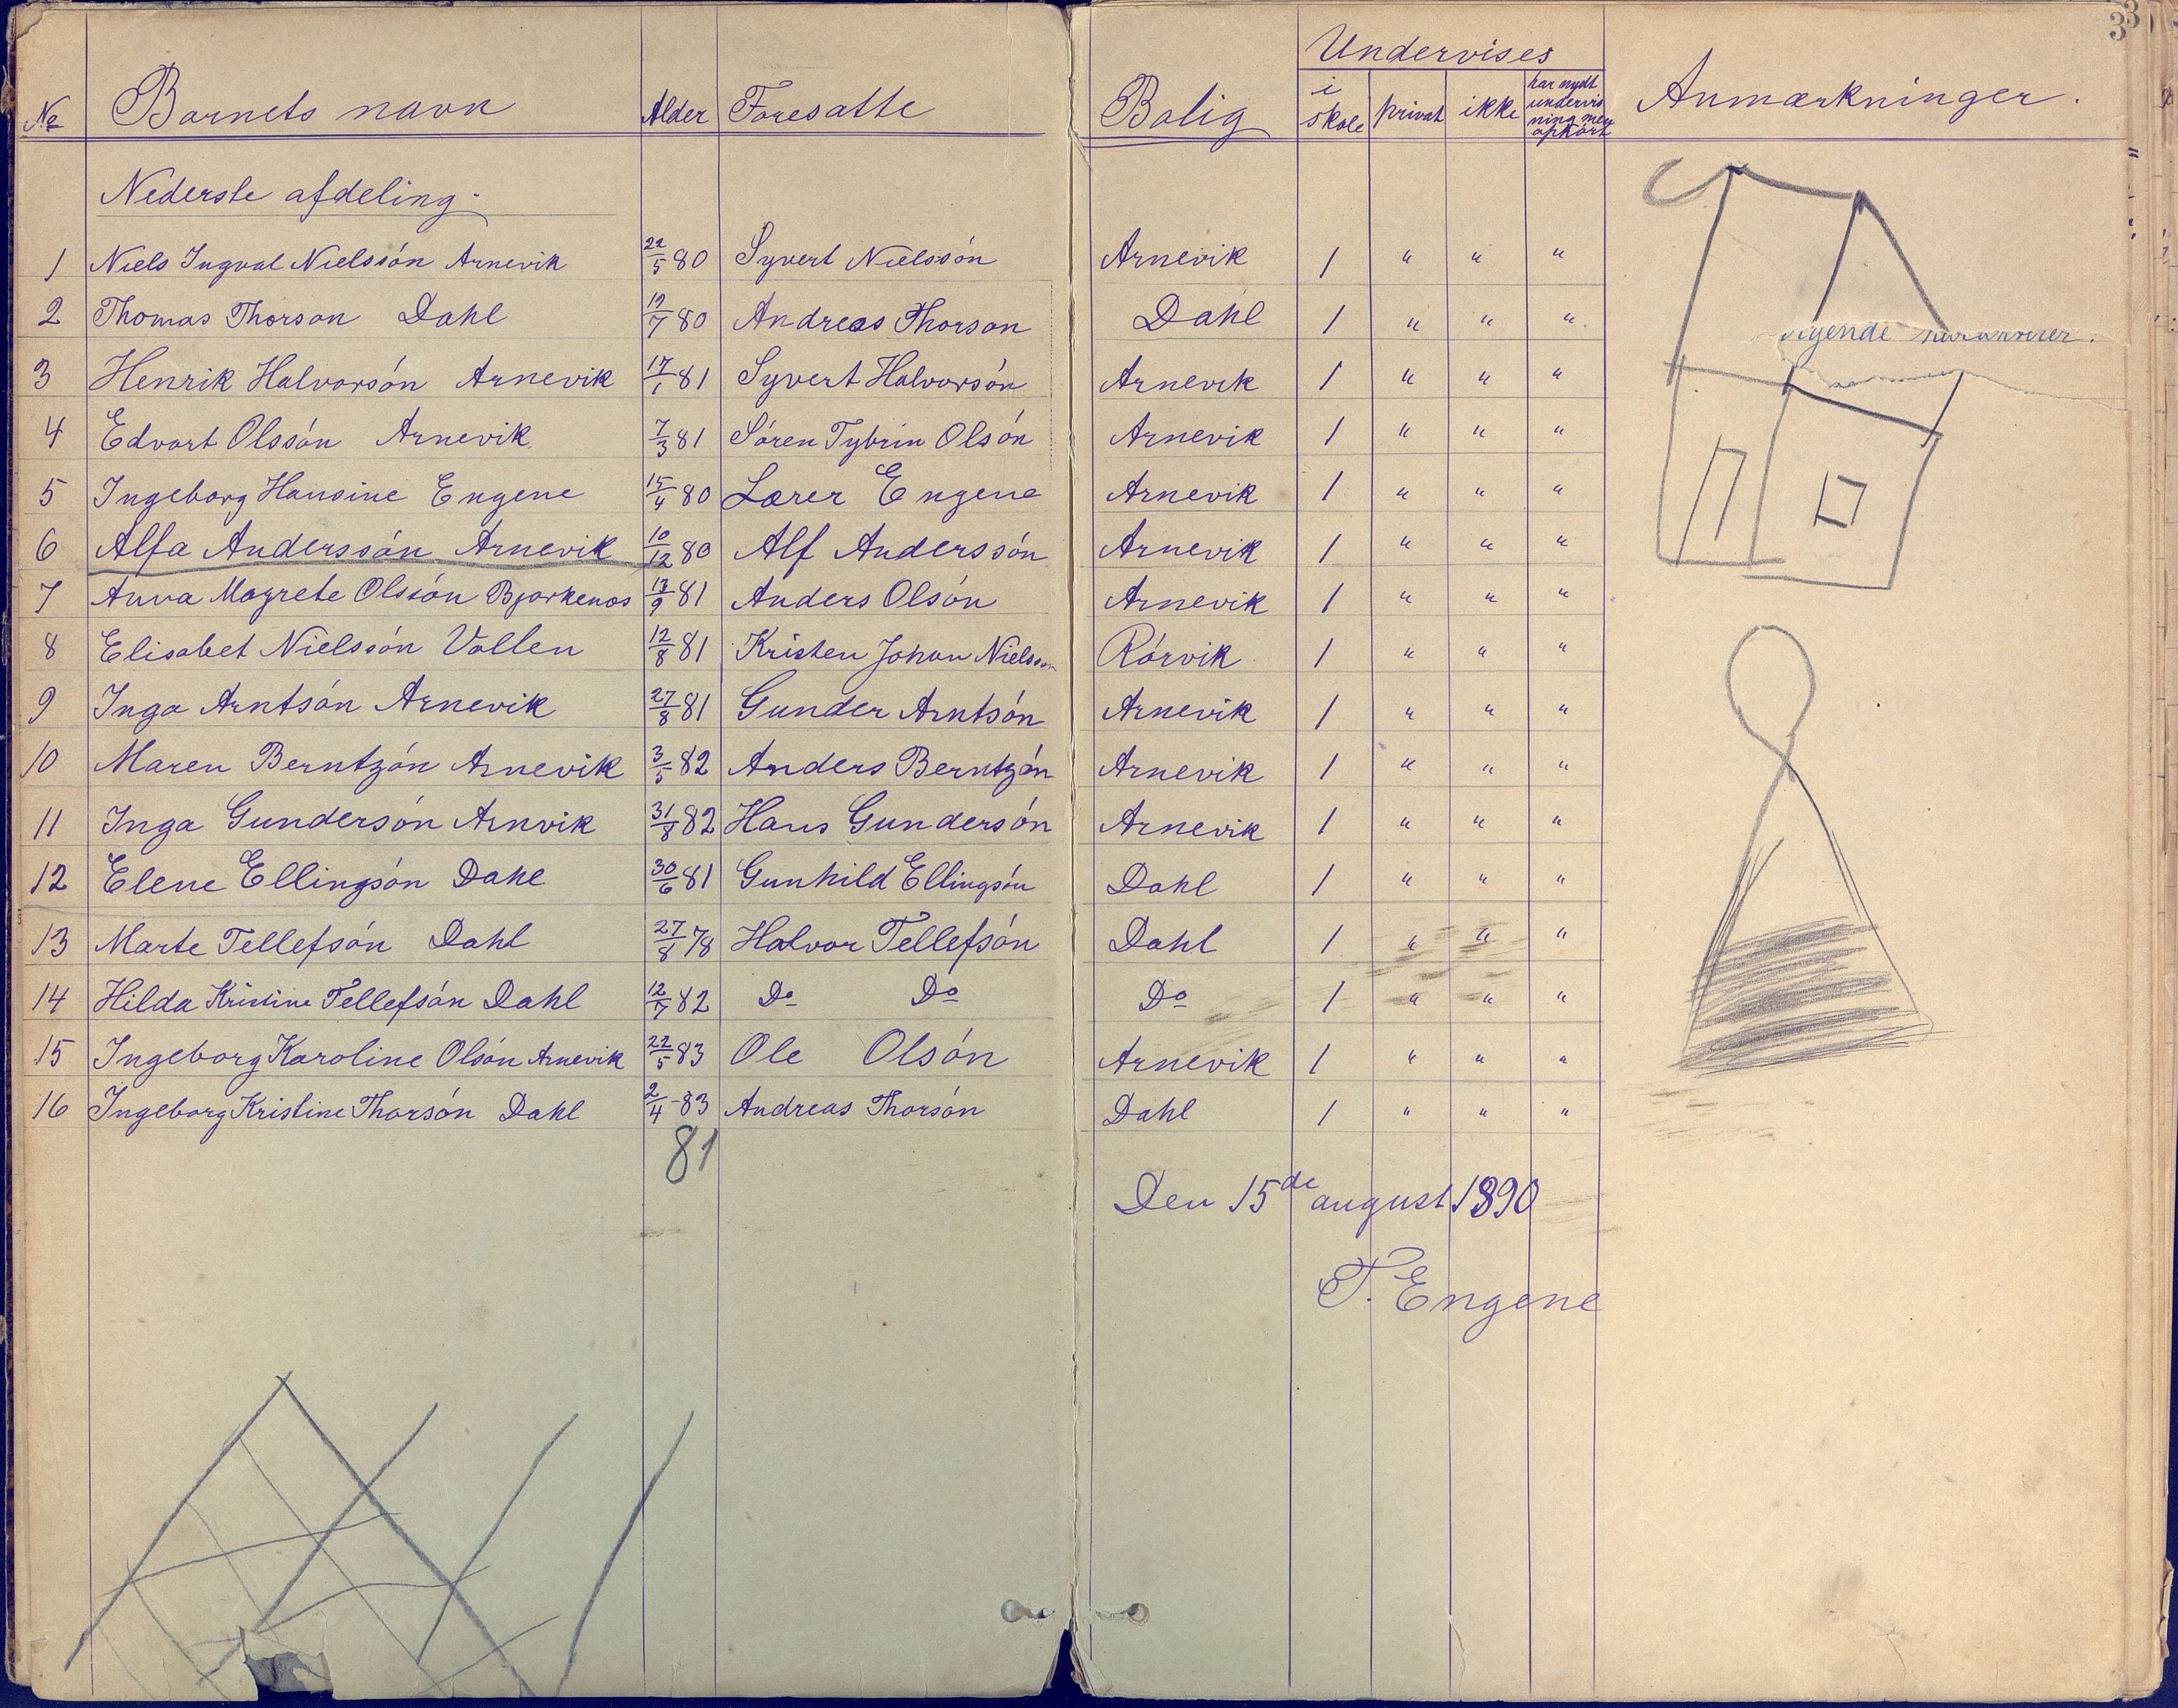 33
Undervises
№ Barnets navn Alder Foresatte Bolig i skole privat ikke har nydt undervisning men ophørt Anmærkninger.
Nederste afdeling.
1 Niels Ingval Nielssón Arnevik 22/5 80 Syvert Nielssón Arnevik 1 " " "
2 Thomas Thorson Dahl 19/7 80 Andreas Thorson Dahl 1 " " "
3 Henrik Halvorsón Arnevik 17/1 81 Syvert Halvorsón Arnevik 1 " " "
4 Edvart Olssón Arnevik 7/3 81 Sóren Tybrin Olsón Arnevik 1 " " "
5 Ingeborg Hansine Engene 15/4 80 Lærer Engene Arnevik 1 " " "
6 Alfa Anderssón Arnevik 10/12 80 Alf Anderssón Arnevik 1 " " "
7 Anna Magrete Olssón Bjorkenos 13/9 81 Anders Olsón Arnevik 1 " " "
8 Elisabet Nielssón Vollen 12/8 81 Kristen Johan Nielsson Rórvik 1 " " "
9 Inga Arntsón Arnevik 27/8 81 Gunder Arntsón Arnevik 1 " " "
10 Maren Berntzón Arnevik 3/5 82 Anders Berntzón Arnevik 1 " " "
11 Inga Gundersón Arnvik 31/8 82 Hans Gundersón Arnevik 1 " " "
12 Elene Ellingsón Dahl 30/6 81 Gunhild Ellingsón Dahl 1 " " "
13 Marte Tellefsón Dahl 27/8 78 Halvor Tellefsón Dahl 1 " " "
14 Hilda Kristine Tellefsón Dahl 12/7 82 Do Do Do 1 " " "
15 Ingeborg Karoline Olsón Arnevik 22/5 83 Ole Olsón Arnevik 1 " " "
16 Ingeborg Kristine Thorsón Dahl 2/4 83 Andreas Thorsón Dahl 1 " " "
81
Den 15de august 1890
T. Engene